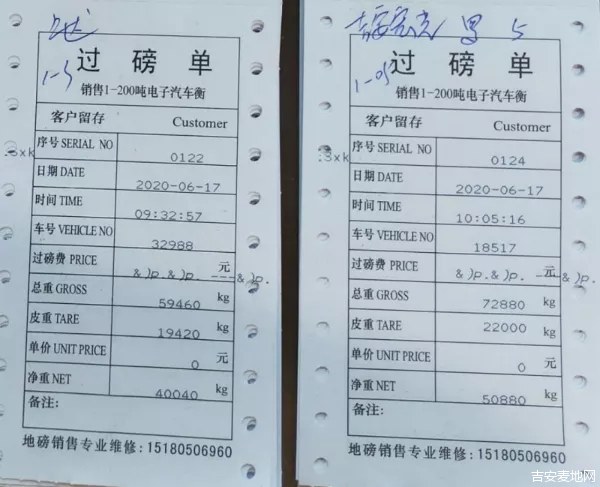 1-5
过磅单
销售1-200吨电子汽车衡
客户留存 Customer
序号 SERIAL NO 0122
日期 DATE 2020-06-17
时间 TIME 09:32:57
车号 VEHICLE NO 32988
过磅费 PRICE &)p.&)p. ---&)p. 元
总重 GROSS 59460 kg
皮重 TARE 19420
单价 UNIT PRICE 0 元
净重 NET 40040 kg
备注:
地磅销售专业维修:15180506960
5
1-05
过磅单
销售1-200吨电子汽车衡
客户留存 Customer
序号 SERIAL NO 0124
日期 DATE 2020-06-17
时间 TIME 10:05:16
车号 VEHICLE NO 18517
过磅费 PRICE &)p.&)p. ---&)p. 元
总重 GROSS 72880 kg
皮重 TARE 22000 kg
单价 UNIT PRICE 0 元
净重 NET 50880 kg
备注:
地磅销售专业维修:15180506960
吉安麦地网